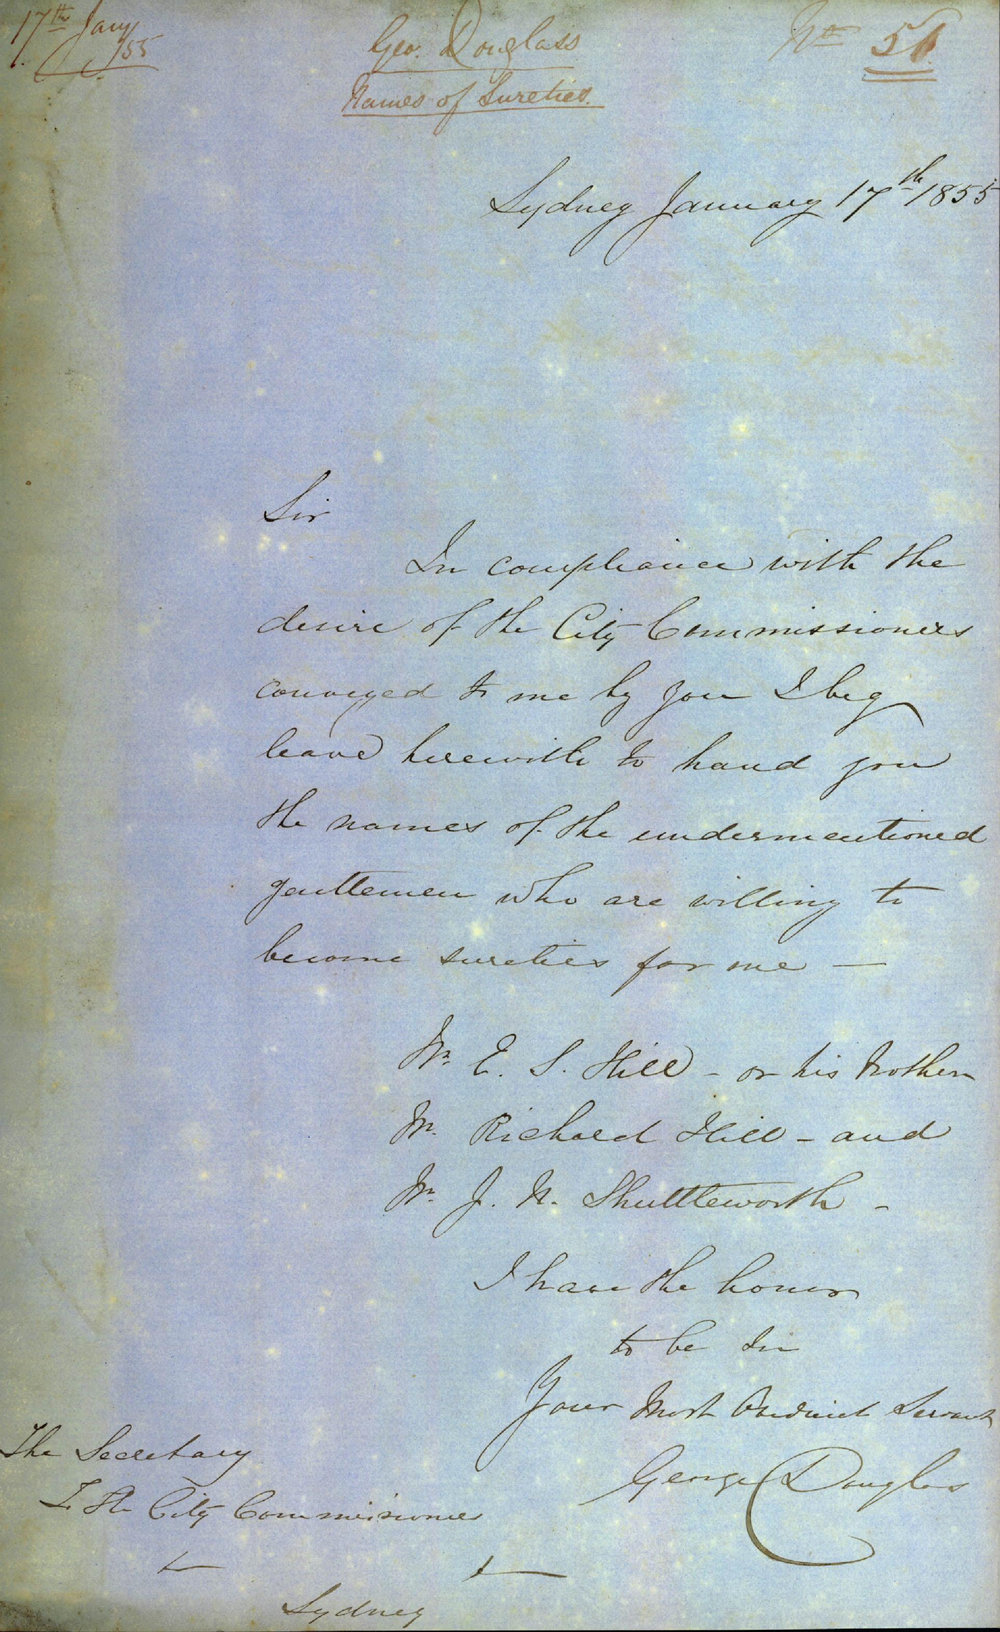 17th Jany /55
Geo. Douglass
Names of Sureties.
No 51
Sydney January 17th 1855
Sir
In compliance with the
desire of the City Commissioners
conveyed to me by you I beg
leave herewith to hand you
the names of the undermentioned
gentlemen who are willing to
become sureties for me —
Mr. E. S. Hill - or his brother
Mr. Richard Hill - and
Mr. J. N. Shuttleworth -
I have the honor
to be Sir
Your Most Obedient Servant
George Douglas
The Secretary
To the City Commissioners
Sydney